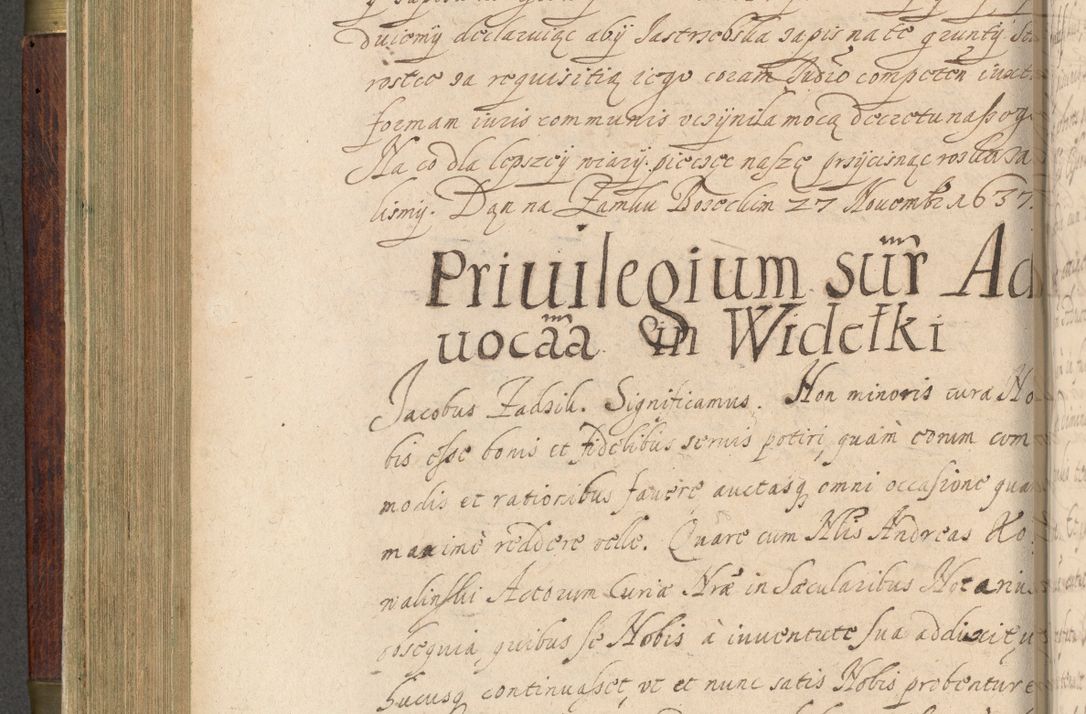 duiemy declaruiąc aby Jastrzebska zapis na te grunty. Sta
rostce za requisitią iego coram Judio competen iuxt
formam iuris communis vczyniła mocą decretu naszog
Na co dla lepszey wiary. pieczęc naszę przycisnąc roskaza
lismy. Dąn na Zamku Bozeckim 27 Nouembr 1637.
Priuilegium sūr Ad
uocāā in Widełki
Jacobus Zadzik. Significamus. Non minoris cura No
bis esse bonis et fidelibus seruis potiri, quàm eorum com
modis et rationibus fauere auctasq omni occasione quam
maximè reddere velle. Quare cum Nlis Andreas Ko
walinski Actorum Curiæ Nræ in Sæcularibus Notarius
obsequia, quibus se Nobis à iuuentute sua addixit,
hucusq continuasset, vt et nunc satis Nobis probentur e